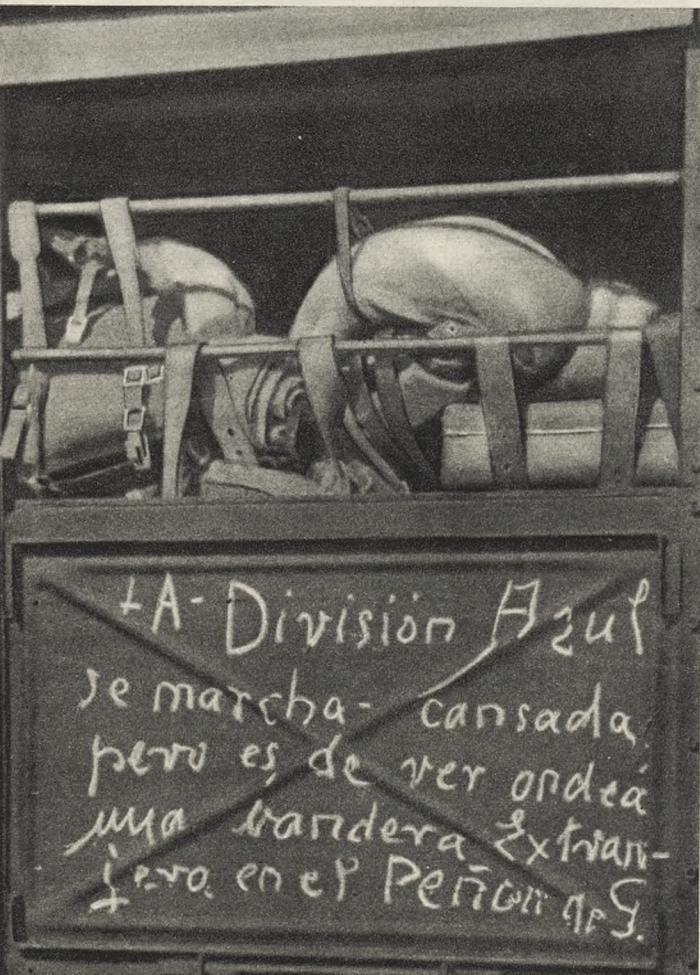 LA- División Azul
se marcha- cansada,
pero es de ver ondeá
una bandera Extran-
jera en el Peñon de G.